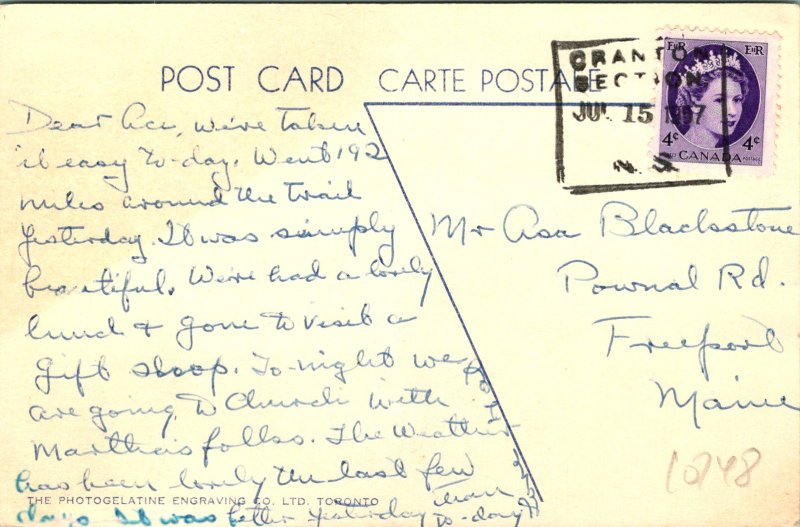 POST CARD CARTE POSTALE
CRANTON
SECTION
JUL 15 1957
N.S.
E II R E II R
4¢ 4¢
CANADA
POSTES POSTAGE
Dear Ace, we've taken
it easy to-day. Went 192
miles around the trail
yesterday. It was simply
beautiful. We've had a lovely
lunch & gone to visit a
gift shoop. To-night we
are going to Church with
Martha's folks. The weather
has been lovely the last few
days It was better yesterday than
to-day
Mr Asa Blackstone
Pownal Rd.
Freeport
Maine
10148
THE PHOTOGELATINE ENGRAVING CO. LTD. TORONTO